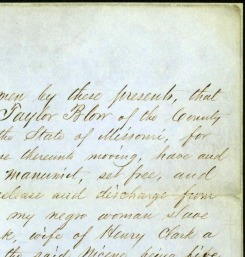 men by these presents, that
Taylor Blow of the County
the State of Missouri, for
thereunto moving, have and
manumit, set free, and
release and discharge from
my negro woman slave
wife of Henry Clark a
the said being five